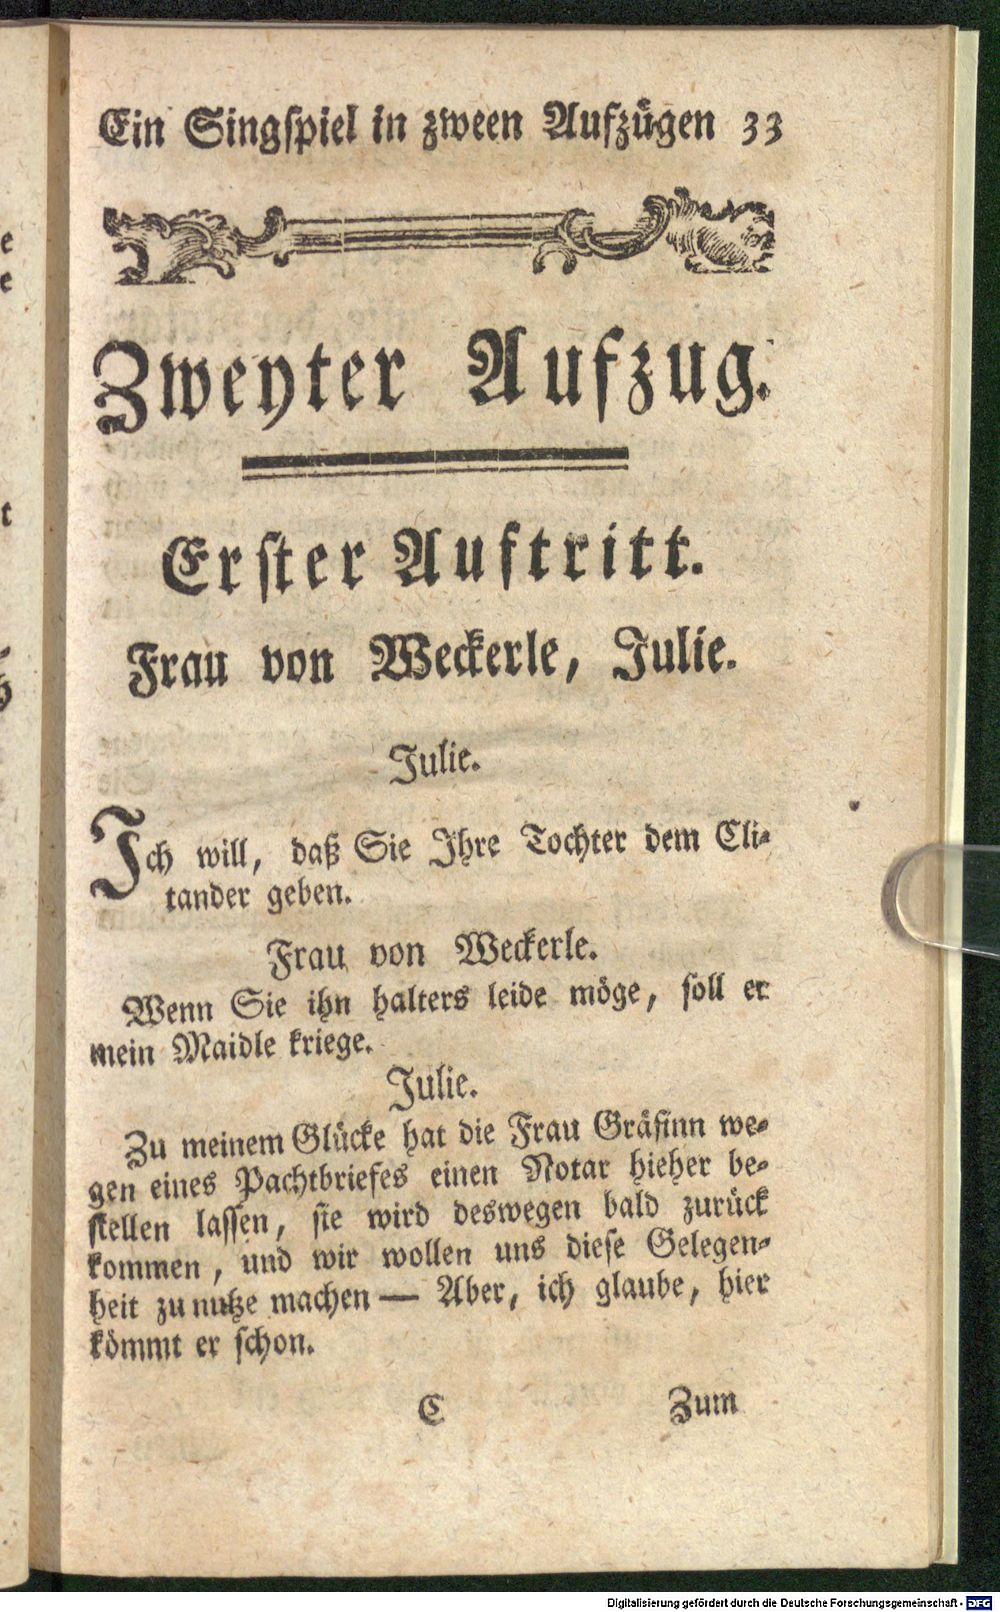 Ein Singspiel in zween Aufzügen 33
Zweyter Aufzug.
Erster Auftritt.
Frau von Weckerle, Julie.
Julie.
Ich will, daß Sie Ihre Tochter dem Cli-
tander geben.
Frau von Weckerle.
Wenn Sie ihn halters leide möge, soll er
mein Maidle kriege.
Julie.
Zu meinem Glücke hat die Frau Gräfinn we-
gen eines Pachtbriefes einen Notar hieher be-
stellen lassen, sie wird deswegen bald zurück
kommen, und wir wollen uns diese Gelegen-
heit zu nutze machen — Aber, ich glaube, hier
kömmt er schon.
C Zum
Digitalisierung gefördert durch die Deutsche Forschungsgemeinschaft - DFG